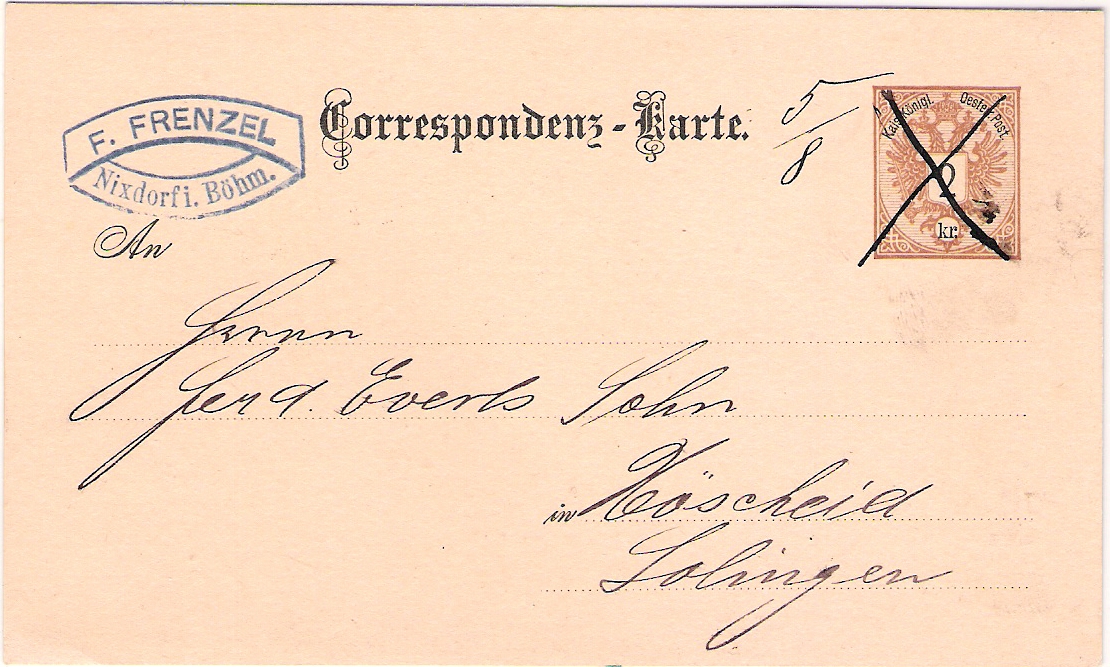 F. FRENZEL
Nixdorf i. Böhm.
Correspondenz-Karte.
5/8
Kais. Königl. Oesterr. Post.
2
kr.
An
Herrn
Ferd. Everts Sohn
in Höscheid
Solingen